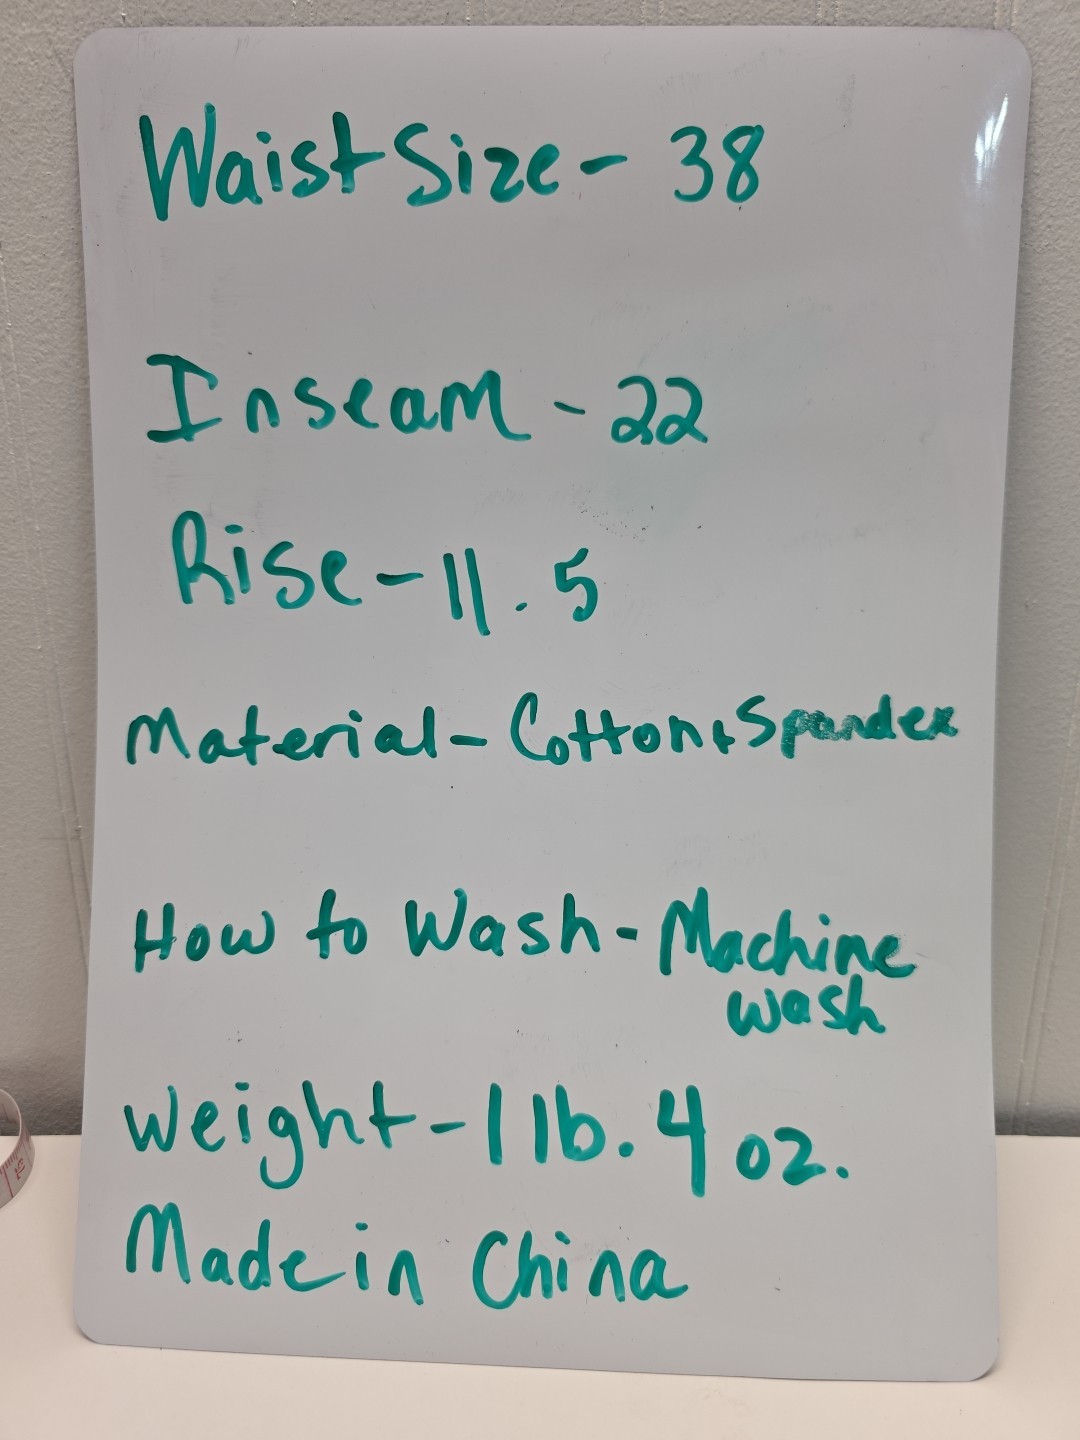 Waist Size - 38
Inseam - 22
Rise - 11.5
Material - Cotton & Spandex
How to Wash - Machine
wash
Weight - 1 lb. 4 oz.
Made in China